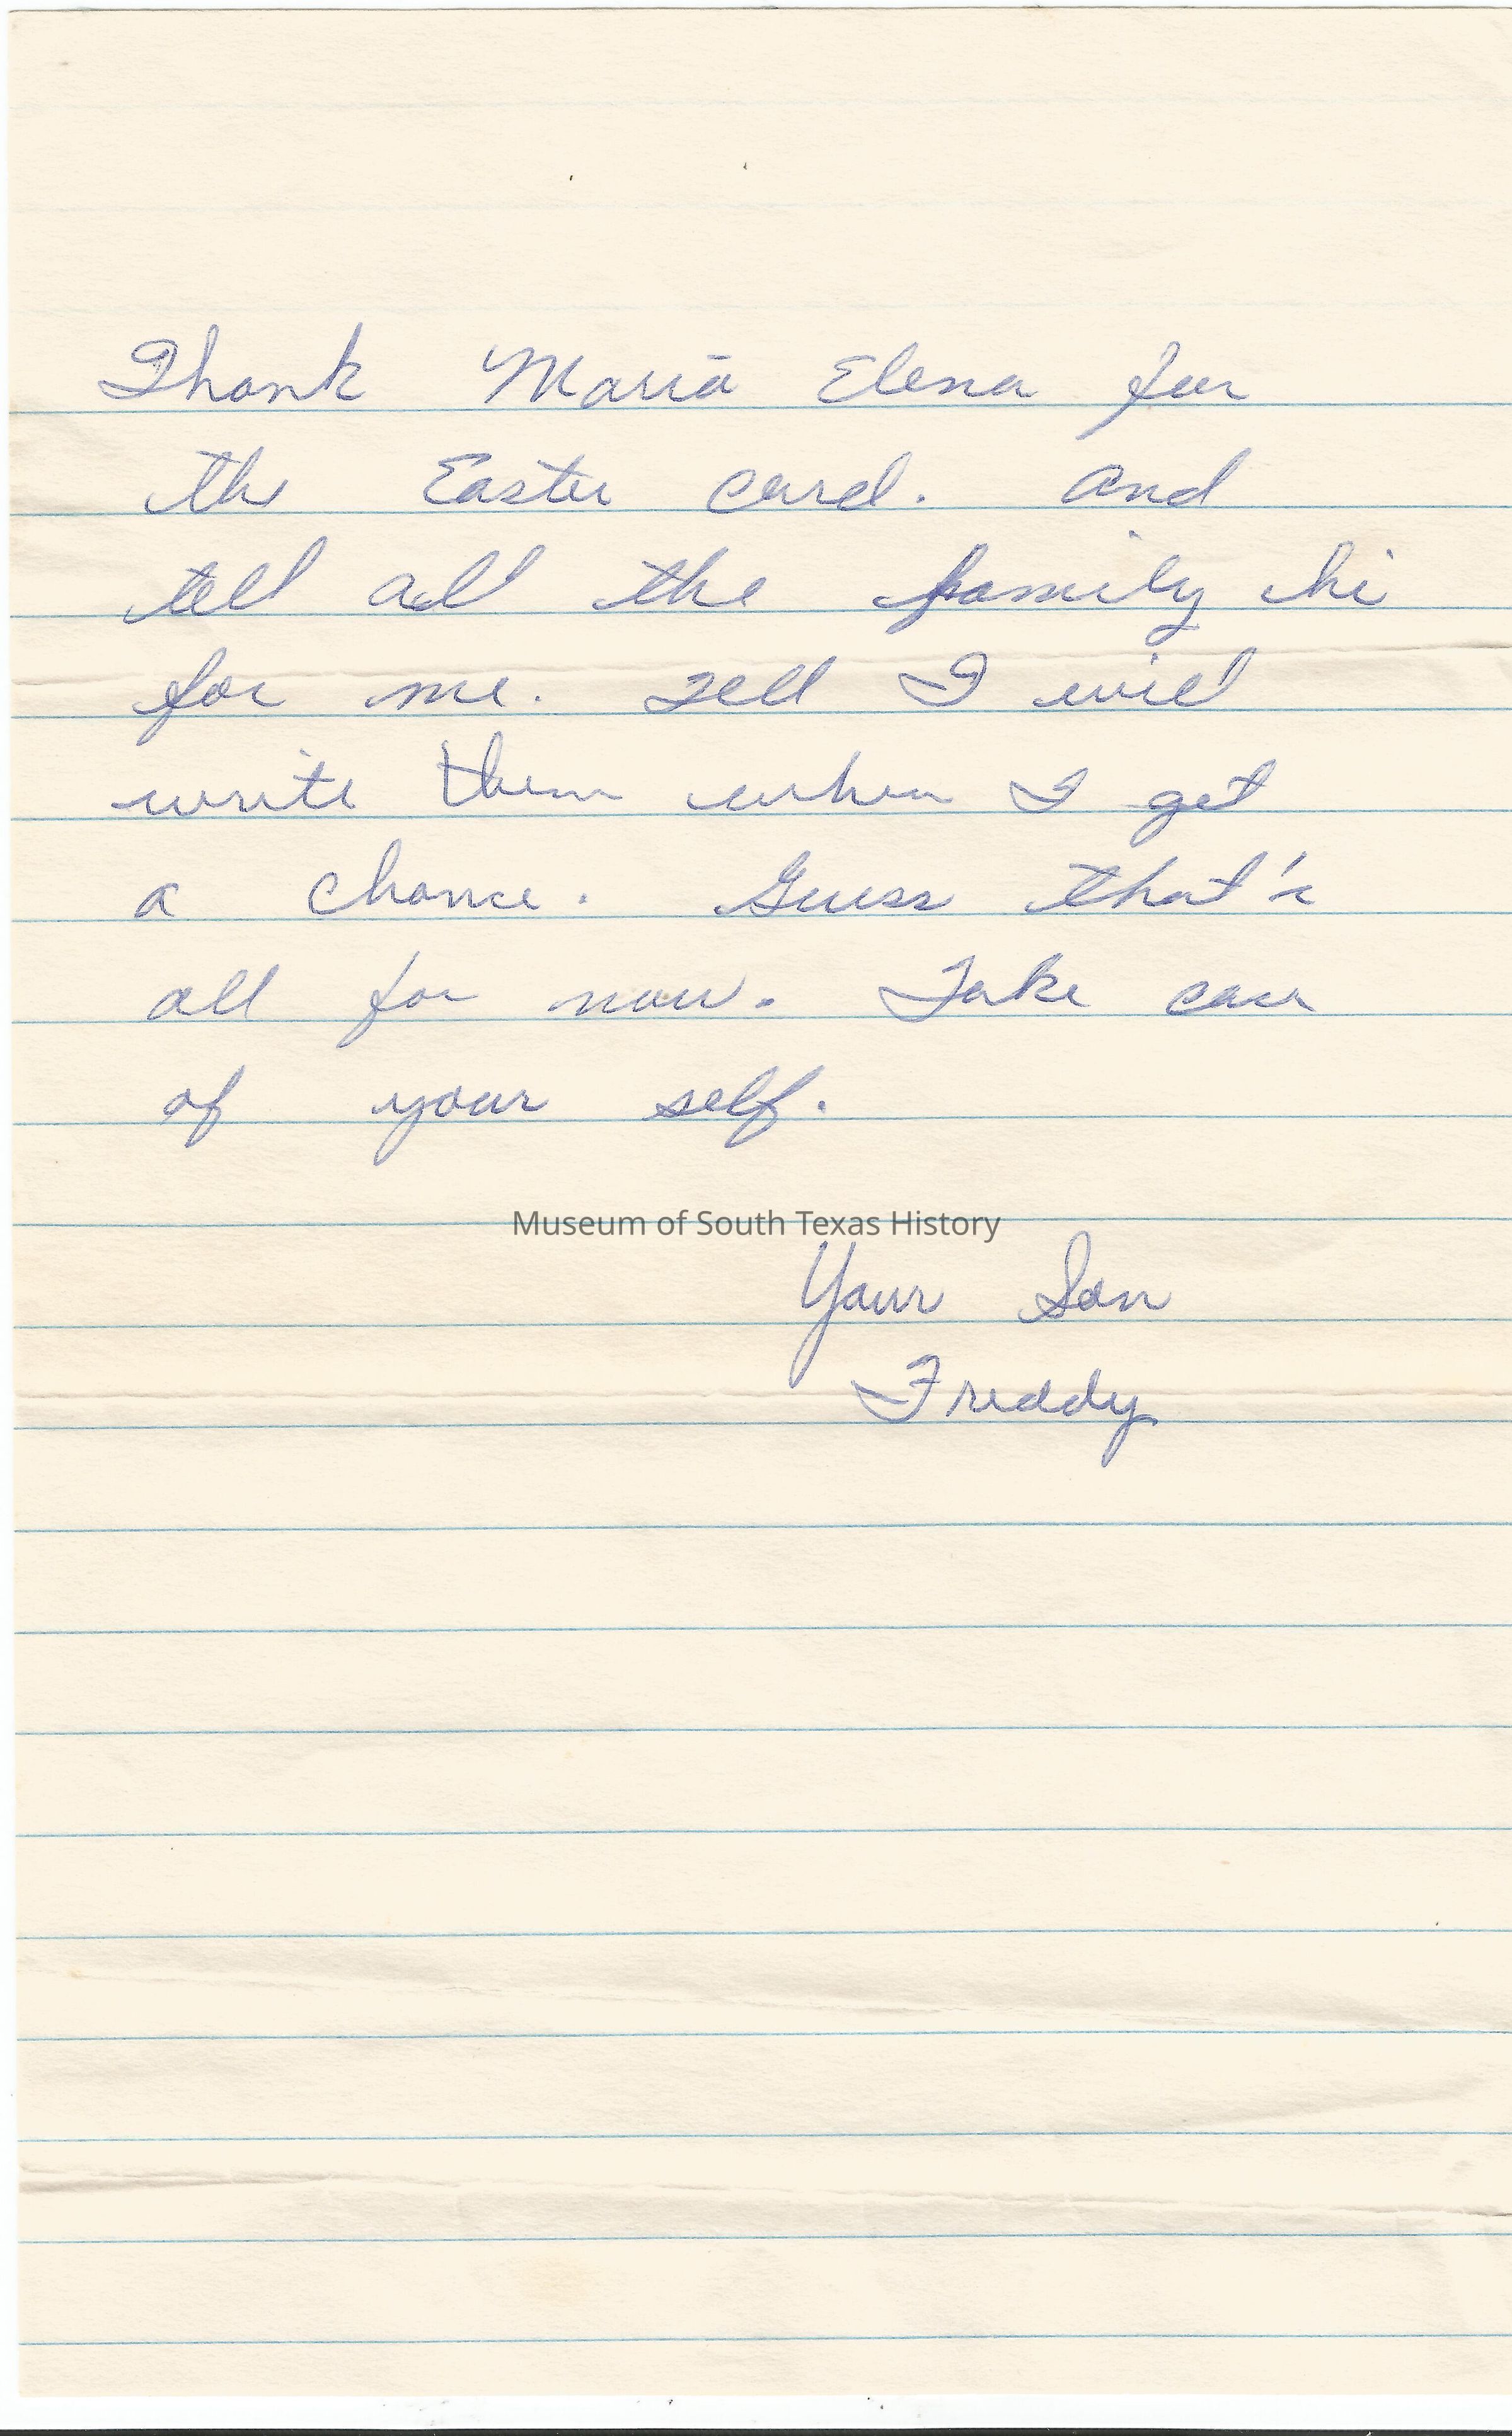 Thank Maria Elena for
the Easter card. And
tell all the family hi
for me. Tell I will
write them when I get
a chance. Guess that's
all for now. Take care
of your self.
Museum of South Texas History
Your Son
Freddy